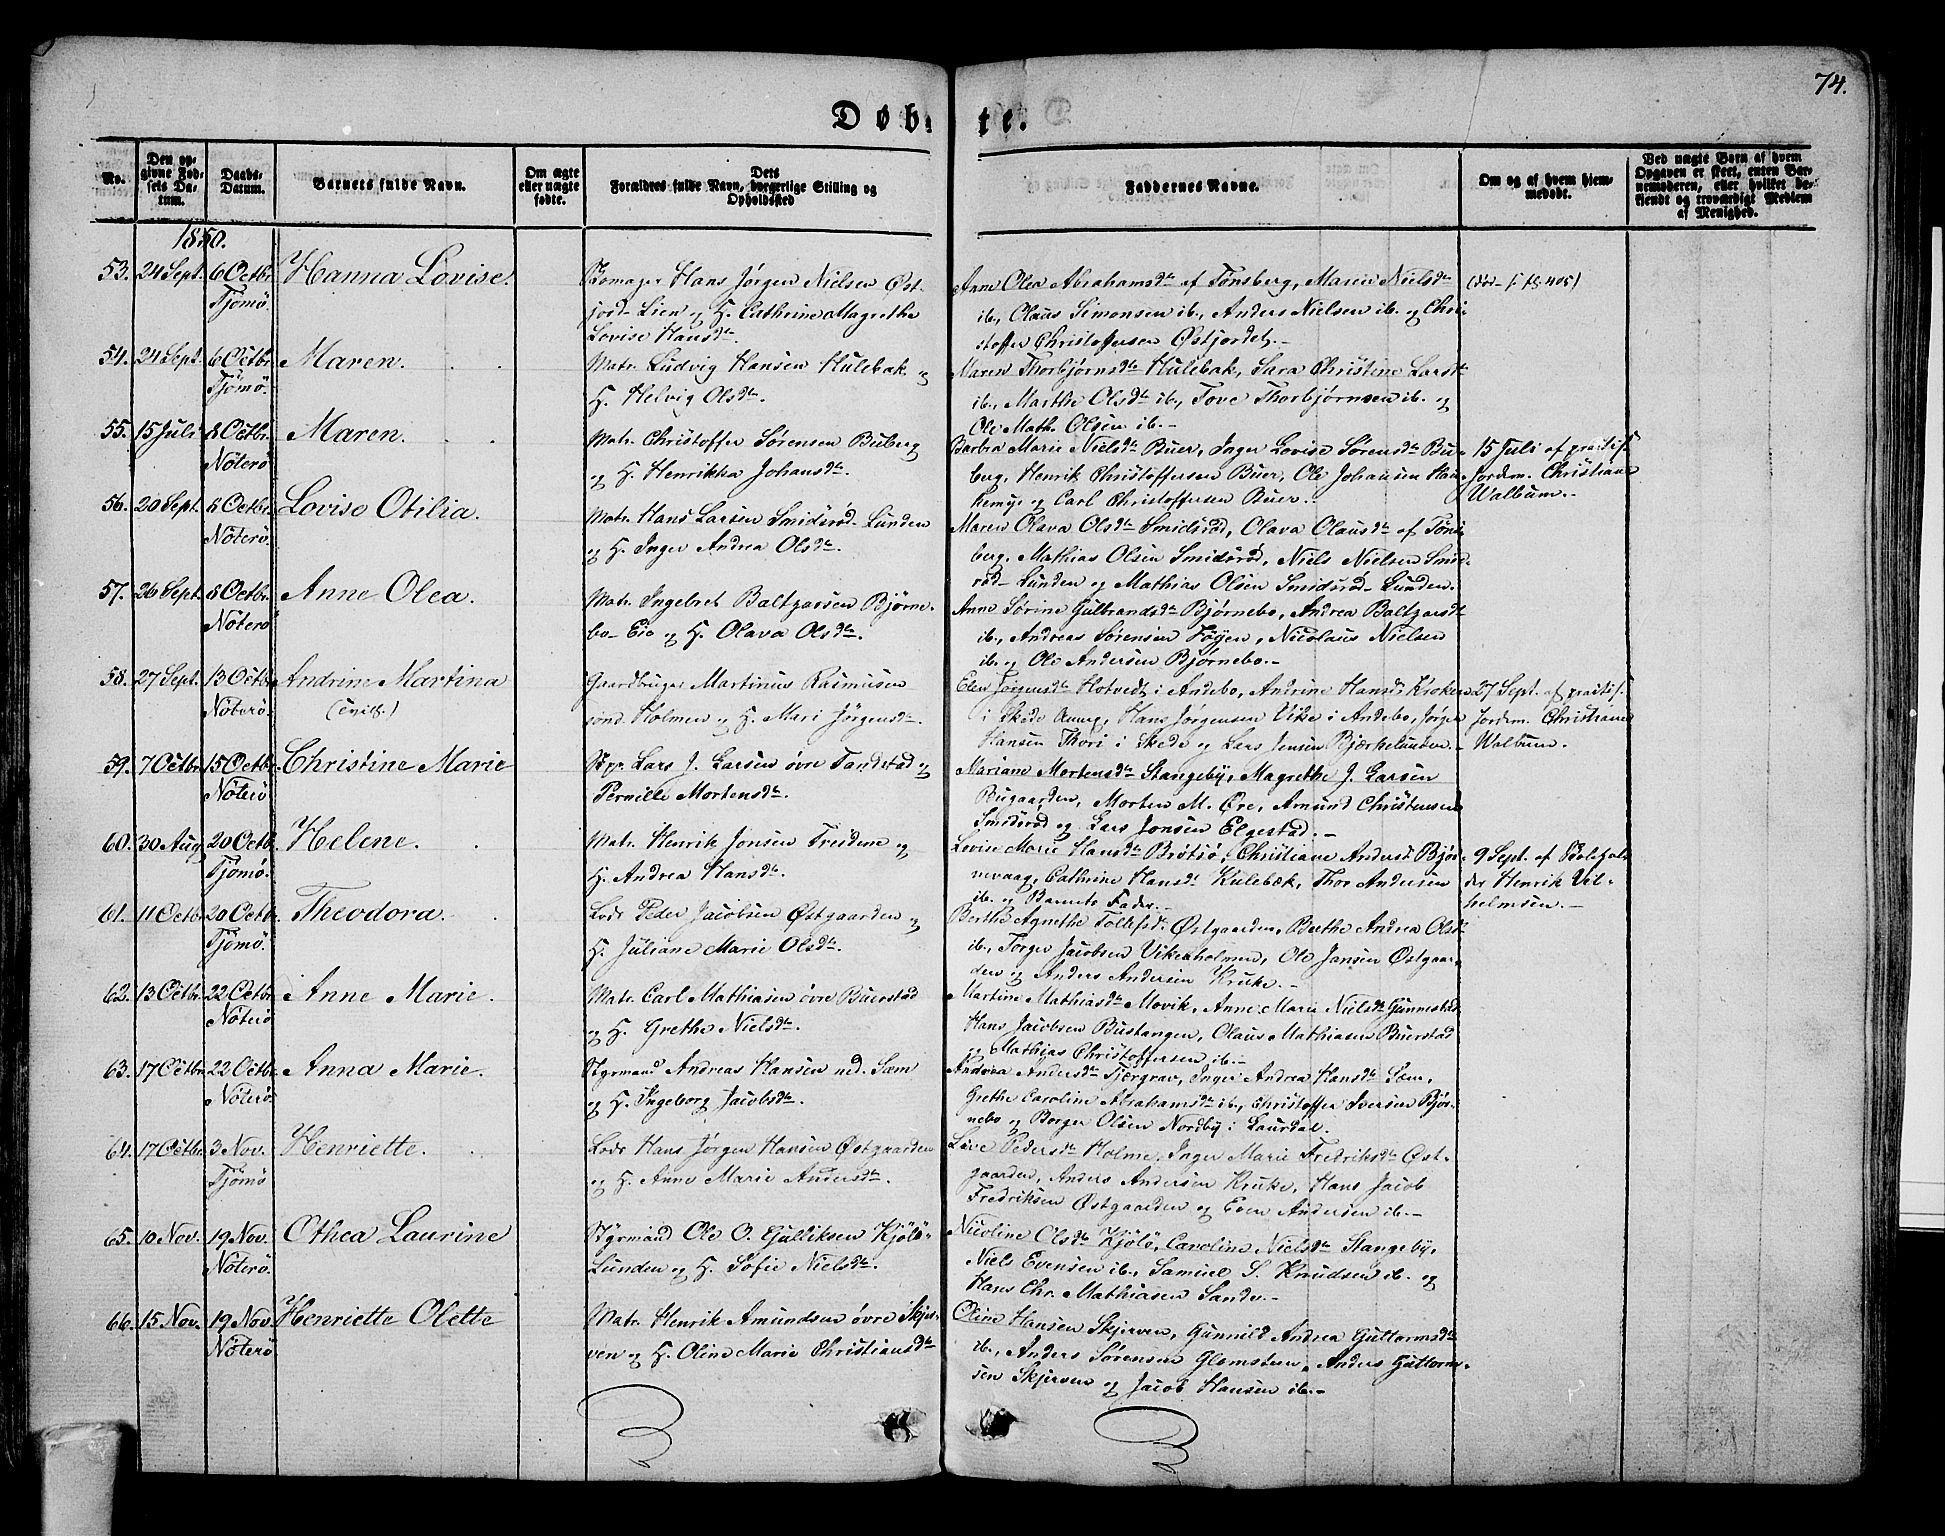 74.
Døbte.
No.
Den opgivne Fødsels Datum.
Daabs-Datum.
Barnets fulde Navn.
Om ægte eller uægte fødte.
Dets Forældres fulde Navn, borgerlige Stilling og Opholdssted
Faddernes Navne.
Om og af hvem hjemmedøbt.
Ved uægte Børn af hvem Opgaven er skeet, enten Barnemoderen, eller hvilket bekjendt og troværdigt Medlem af Menighed.
1850.
53. 24 Sept. 6 Octbr. Tjömö. Hanna Lovise.
Hans Jørgen Nielsen Øst-
jord-Lien og H. Cathrine Magrethe
Lovise Hansdtr.
Anne Olea Abrahamsdtr af Tønsberg, Maren Nielsdtr
ib., Olaus Simonsen ib., Anders Nielsen ib. og Chri-
stoffer Christoffersen Østjordet.-
54. 24 Sept. 6 Octbr. Tjömö. Maren.
Matr. Ludvig Hansen Hulebak og
H. Helvig Olsdtr.
Maren Thorbjørnsdtr Hulebak, Sara Christine Larsdtr
ib., Marthe Olsdtr ib., Tove Thorbjørnsen ib. og
Ole Math. Olsen ib.-
55. 15 Juli 8 Octbr. Nöterö Maren.
Matr. Christoffer Sørensen Buberg
og H. Henrikka Johansdtr.
Barbra Marie Nielsdtr Buer, Inger Lovise Sørensdtr Bu-
berg, Henrik Christoffersen Buer, Ole Johansen Hau-
kemyr og Carl Christoffersen Buer.-
15 Juli af practis.
Jordem. Christiane
Walbum.-
56. 20 Sept. 8 Octbr. Nöterö. Lovise Otilia.
Matr. Hans Larsen Smidsröd-Lunden
og H. Inger Andrea Olsdtr.
Maren Olava Olsdtr Smidsröd, Olava Olausdtr af Töns-
berg, Mathias Olsen Smidsröd, Niels Nielsen Smids-
röd-Lunden og Mathias Olsen Smidsröd-Lunden.
57. 26 Sept. 8 Octbr. Nöterö Anne Olea.
Matr. Ingebret Baltzarsen Bjørne-
bo-Eie og H. Olava Olsdtr.
Anne Sörine Gulbrandsdtr Bjørnebo, Andrea Baltzarsdtr
ib., Andreas Sørensen Føyen, Nicolaus Nielsen
ib. og Ole Andersen Bjørnebo.-
58. 27 Sept. 13 Octbr. Nöterö. Andrine Martina
(Tvill.)
Gaardbruger Martinus Rasmusen
Holmen og H. Mari Jörgensdtr.
Elen Jörgensdtr Hotvedt i Andebo, Andrine Hansdtr
i Skede Hans Jörgensen Vike i Andebo, Jörgen
Hansen Thori i Skede og Lars Jensen Bjærkelunden.-
27 Sept. af practis.
Jordem. Christiane
Walbum.
59. 7 Octbr. 15 Octbr. Nöterö Christine Marie
Lars J. Larsen övre Tandstad og
Pernille Mortensdtr.
Mariane Mortensdtr Stangeby, Magrethe J. Larsen
Bugaarden, Morten M. Öre, Amund Christensen
Smidsröd og Lars Jonsen Elgestad.-
60. 30 Aug. 20 Octbr. Tjömö. Helene.
Matr. Henrik Jonsen Tresdene og
H. Andrea Hansdtr.
Lovise Marie Hansdtr Brötsö, Christiane Andersdtr Björ-
nevaag, Cathrine Hansdtr Kulebæk, Thor Andersen
ib. og Barnets Fader.-
9 Sept. af Skolehol-
der Henrik Vil-
helmsen.-
61. 11 Octbr. 20 Octbr. Tjömö. Theodora.
Lods Peder Jacobsen Østgaarden og
H. Juliane Marie Olsdtr.
Berthe Agnethe Tollefsdtr Østgaarden, Berthe Andrea Olsdtr
ib., Torger Jacobsen Vikenholmen, Ole Jansen Østgaar-
den og Anders Andersen Kruke.-
62. 13 Octbr. 22 Octbr. Nöterö Anne Marie.
Matr. Carl Mathiasen övre Buerstad
og H. Grethe Nielsdtr.
Martine Mathiasdtr Movik, Anne Marie Nielsdtr Gunnestad,
Hans Jacobsen Bustangen, Olaus Mathiasen Buerstad
og Mathias Christoffersen ib.-
63. 17 Octbr. 22 Octbr. Nöterö. Anna Marie.
Styrmand Andreas Hansen ned. Sæm
og H. Ingeborg Jacobsdtr.
Andrea Andersdtr Tjærgrav, Inger Andrea Hansdtr Sæm,
Grethe Caroline Abrahamsdtr ib., Christoffer Iversen Bjør-
nebo og Borger Olsen Nordby i Laurdal.
64. 17 Octbr. 3 Nov. Tjömö Henriette.
Lods Hans Jørgen Hansen Østgaarden
og H. Anne Marie Andersdtr.
Live Pedersdtr Holme, Inger Marie Fredriksdtr Øst-
gaarden, Anders Andersen Kruke, Hans Jacob
Fredriksen Østgaarden og Even Andersen ib.-
65. 10 Nov. 19 Nov. Nöterö. Othea Laurine
Styrmand Ole O. Gulliksen Kjölö-
Lunden og H. Sofie Nielsdtr.
Nicoline Olsdtr Kjölö, Caroline Nielsdtr Stangeby,
Niels Evensen ib., Samuel S. Knudsen ib. og
Hans Chr. Mathiasen Sande.-
66. 15 Nov. 19 Nov. Nöterö Henriette Olette
Matr. Henrik Amundsen övre Skjer-
ven og H. Oline Marie Christiansdtr
Oline Hansen Skjerven, Gunnild Andrea Guttormsdtr
ib., Anders Sörensen Glomsteen, Anders Guttorm-
sen Skjerven og Jacob Hansen ib.-